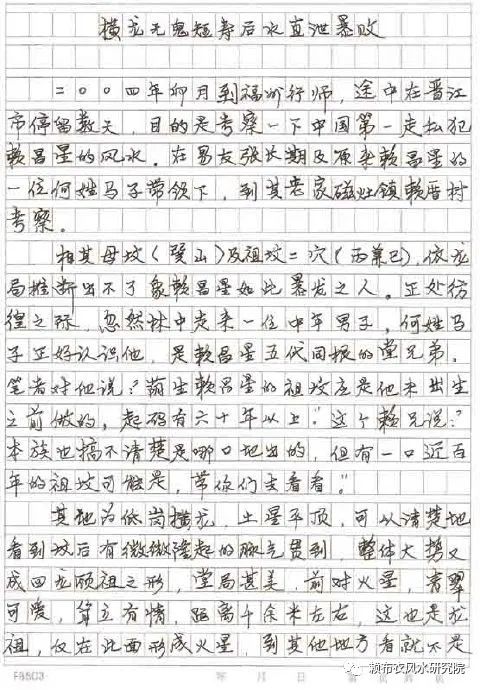 横龙无鬼短寿后水直泄暴败
二〇〇四年卯月到福州行师，途中在晋江
市停留数天，目的是考察一下中国第一走私犯
赖昌星的风水。在易友张长期及原来赖昌星的
一位何姓马子带领下，到其老家磁灶镇赖厝村
考察。
相其母坟（巽山）及祖坟二穴（丙兼巳），依龙
局推断出不了象赖昌星如此暴发之人。正处彷
徨之际，忽然林中走来一位中年男子，何姓马
子正好认识他，是赖昌星五代同根的堂兄弟。
笔者对他说：“荫生赖昌星的祖坟应是他未出生
之前做的，起码有六十年以上。”这个赖兄说：“
本族也搞不清楚是哪口地出的，但有一口近百
年的祖坟可能是，带你们去看看。”
其地为低岗横龙，土星平顶，可以清楚地
看到坟后有微微隆起的脉气贯到，整体大势又
成回龙顾祖之形，堂局甚美，前对火星，青翠
可爱，耸立有情，距离千余米左右，这也是龙
祖，仅在此面形成火星，到其他地方看就不是
年 月 日
赖布衣风水研究院